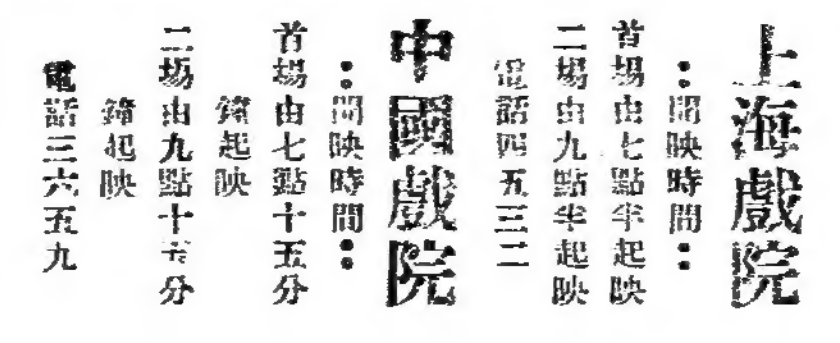 上海戲院
：開映時間：
首場由七點半起映
二場由九點半起映
電話四五三二
中國戲院
：開映時間：
首場由七點十五分
鐘起映
二場由九點十五分
鐘起映
電話三六五九